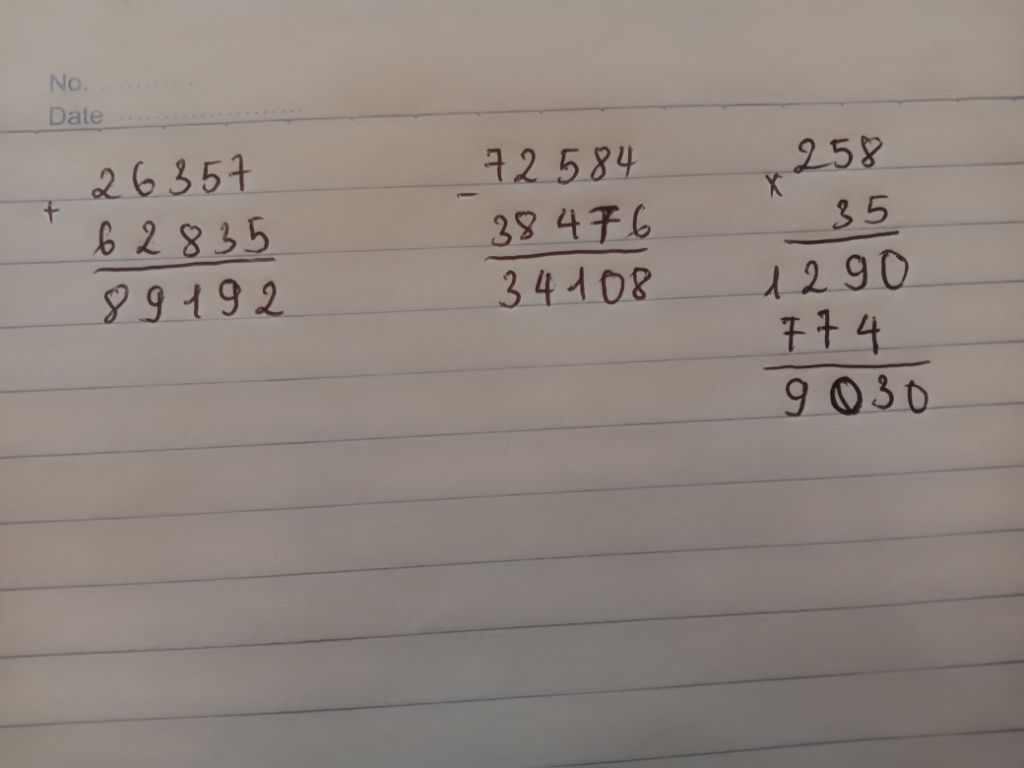 No. ..............
Date ..............................
26357
+
62835
89192
72584
-
38476
34108
258
x
35
1290
774
9030